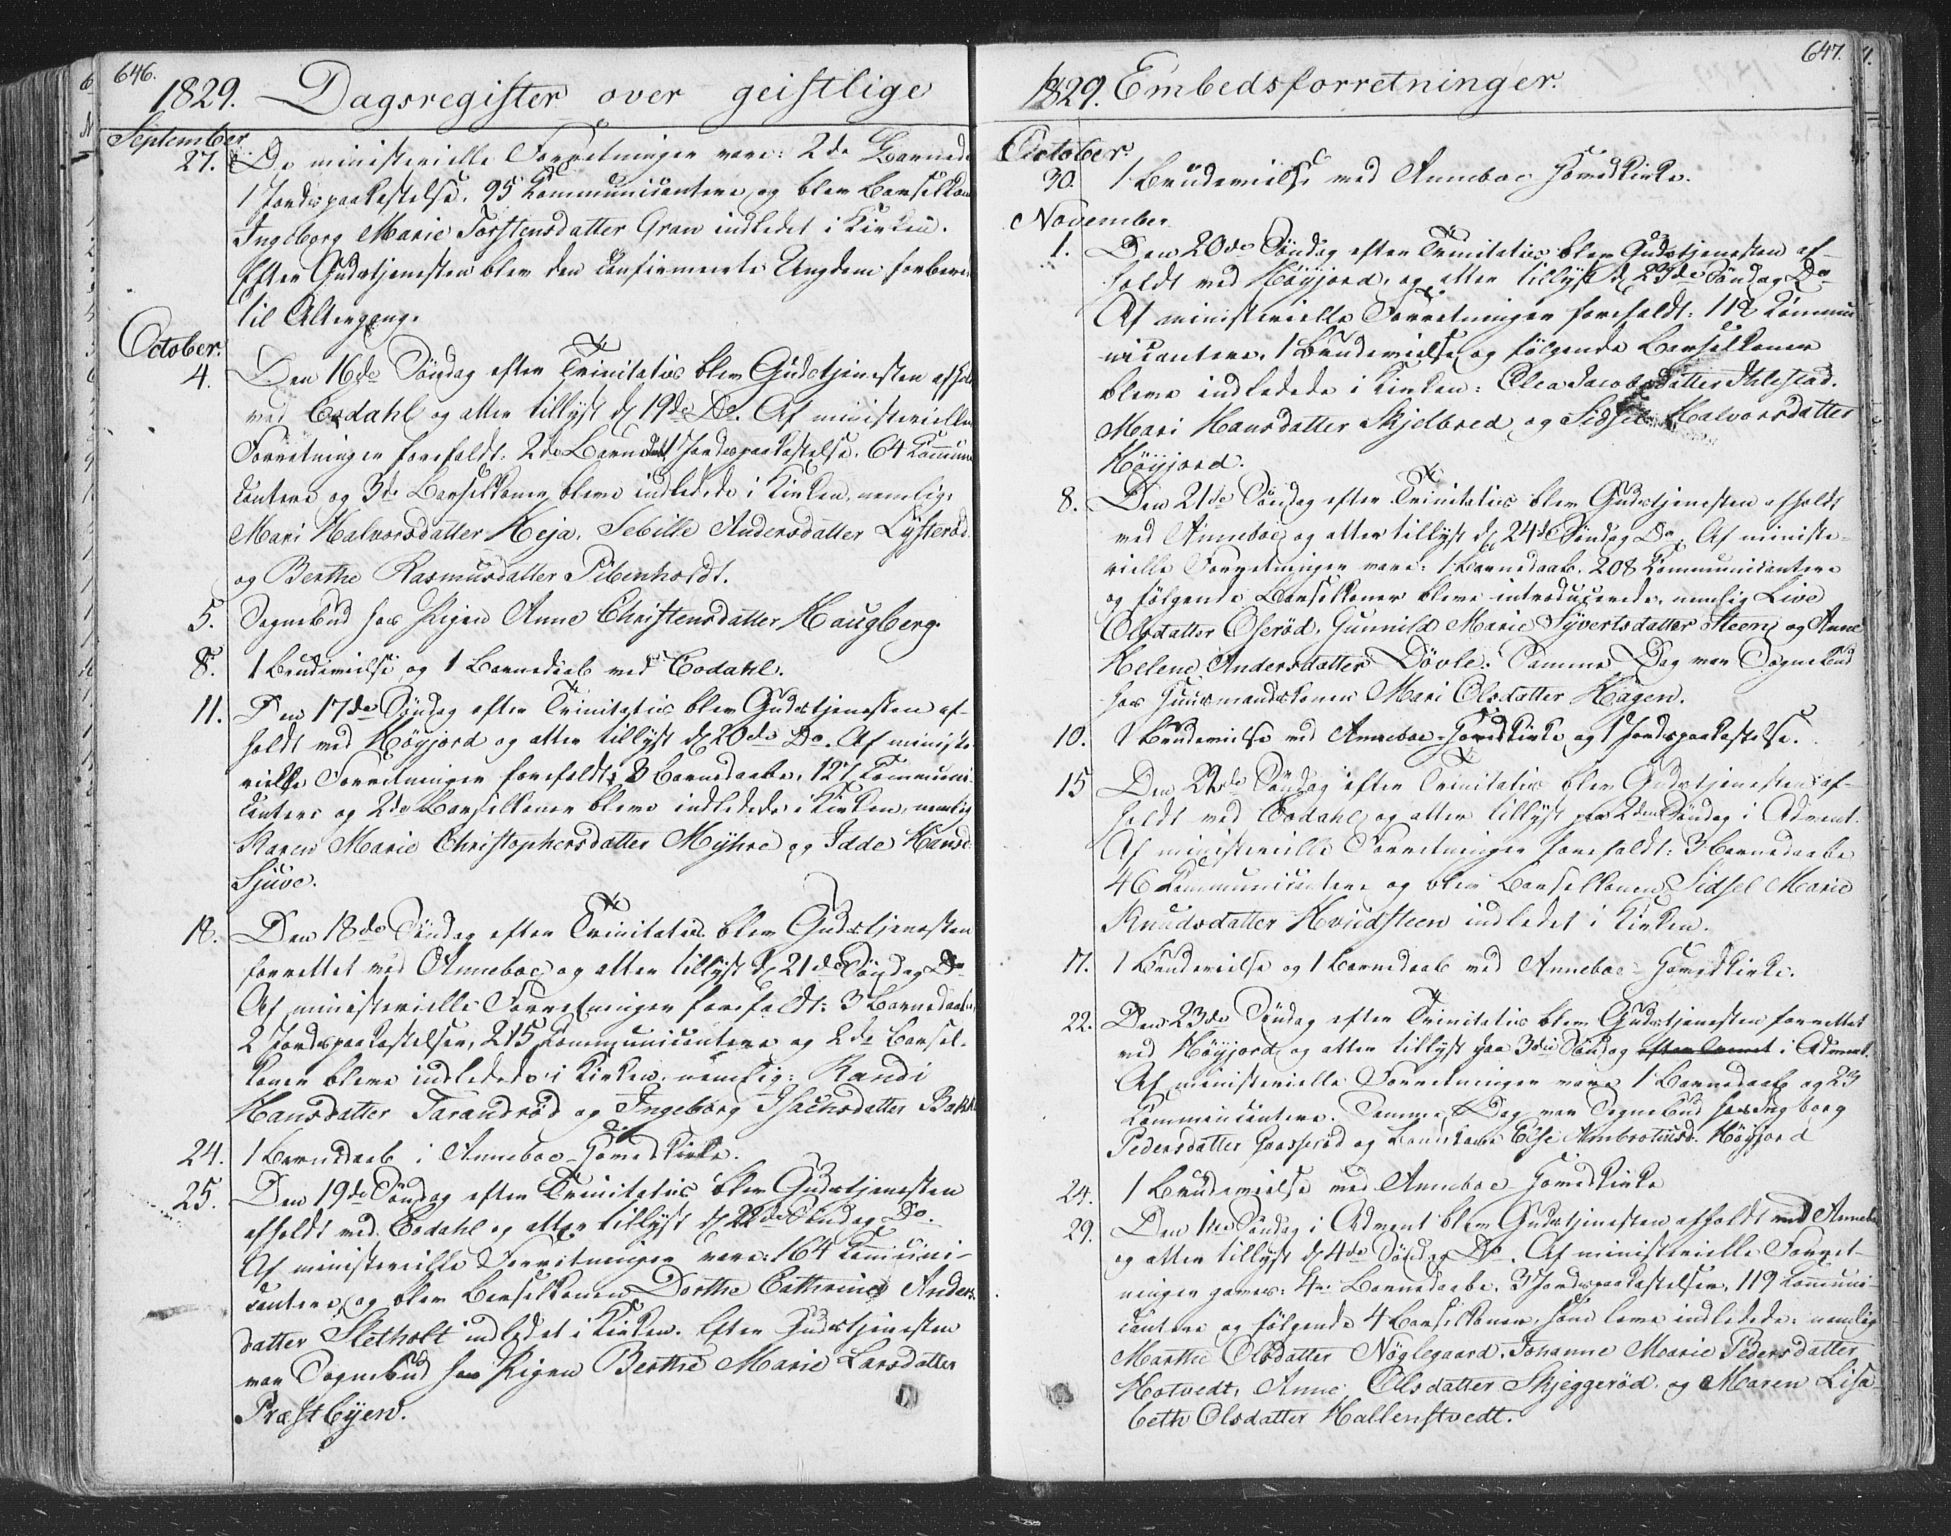 646.
1829. Dagsregister over geistlige
September
27. De ministerielle Forretninger vare: 2de Barnedaabe
1 Jordspaakastelse, 95 Kommunicantere, og blev Barselkonen
Ingeborg Marie Torstensdatter Gran indledet i Kirken.
Efter Gudstjenesten blev den confirmerte Ungdom forbere
til Altergang.
October.
4. Den 16de Söndag efter Trinitatis blev Gudstjenesten afhold
ved Eodahl og atter tillyst d. 19de Do. Af ministerielle
Forretninger forefaldt: 2de Barned. 1 Jordspaakastelse, 64 Kommuni
cantere og 3de Barselkoner bleve indledede i Kirken, nemlig:
Mari Halvorsdatter Heja, Sebille Andersdatter Lysteröd
og Berthe Rasmusdatter Pibenholdt.
5. Sognebud hos Pigen Anne Christensdatter Haugberg.
8. 1 Brudevielse og 1 Barnedaab ved Eodahl.
11. Den 17de Söndag efter Trinitatis blev Gudstjenesten af-
holdt ved Höyjord og atter tillyst d. 20de Do. Af ministe
rielle Forretninger forefaldt: 3 Barnedaabe, 127 Kommuni-
cantere og 2de Barselkoner bleve indledede i Kirken, nemlig
Karen Marie Christophersdatter Myhre og Idde Hansd.
Sjuve.
18. Den 18de Söndag efter Trinitatis blev Gudstjenesten
forrettet ved Anneboe og atter tillyst d. 21de Söndag Do.
Af ministerielle Forretninger forefaldt: 3 Barnedaabe
2 Jordspaakastelser, 215 Kommunicantere og 2de Barsel-
koner bleve indledede i Kirken, nemlig: Randi
Hansdatter Tarandröd og Ingeborg Isachsdatter Bakk
24. 1 Barnedaab i Anneboe-Hovedkirke.
25. Den 19de Söndag efter Trinitatis blev Gudstjenesten
afholdt ved Eodahl og atter tillyst d. 22de Söndag Do.
Af ministerielle Forretninger vare: 164 Kommuni-
cantere, og blev Barselkonen Dorthe Cathrine Anders
datter Sletholt indledet i Kirken. Efter Gudstjenesten
var Sognebud hos Pigen Berthe Marie Larsdatter
Præstbyen.
647.
1829. Embedsforretninger.
October.
30. 1 Brudevielse ved Anneboe Hovedkirke.
November
1. Den 20de Söndag efter Trinitatis blev Gudstjenesten af-
holdt ved Höyjord, og atter tillyst d. 23de Söndag Do
Af ministerielle Forretninger forefaldt: 112 Kommu
nicantere, 1 Brudevielse og fölgende Barselkoner
bleve indledede i Kirken: Olea Jacobsdatter Ihlestad.
Mari Hansdatter Skjelbred og Sidsel Halvorsdatter
Höyjord.
8. Den 21de Söndag efter Trinitatis blev Gudstjenesten afholdt
ved Anneboe og atter tillyst d. 24de Söndag Do. Af ministe-
rielle Forretninger vare: 1 Barnedaab, 208 Kommunicantere
og fölgende Barselkoner bleve introducerede, nemlig Live
Olsdatter Oseröd, Gunnild Marie Syvertsdatter Steen, og Anne
Helene Andersdatter Dövle. Samme Dag var Sognebud
hos Huusmandskonen Mari Olsdatter Hagen.
10. 1 Brudevielse ved Anneboe-Hovedkirke og 1 Jordspaakastelse.
15 Den 22de Söndag efter Trinitatis blev Gudstjenesten af-
holdt ved Eodahl og atter tillyst paa 2den Söndag i Advent.
Af ministerielle Forretninger forefaldt: 3 Barnedaabe
46 Kommunicantere og blev Barselkonen Sidsel Marie
Knudsdatter Hvidsteen indledet i Kirken.
17. 1 Brudevielse og 1 Barnedaab ved Anneboe-Hovedkirke.
22. Den 23de Söndag efter Trinitatis blev Gudstjenesten forrettet
ved Höyjord og atter tillyst paa 3die Söndag i Advent.
Af ministerielle Forretninger vare 1 Barnedaab og 23
Kommunicantere. Samme Dag var Sognebud hos Ingborg
Pedersdatter Gaasserød og Else Ambrotiusd. Höyjord
24. 1 Brudevielse ved Anneboe Hovedkirke
29. Den 1ste Söndag i Advent blev Gudstjenesten afholdt ved Annebo
og atter tillyst d. 4de Söndag Do. Af ministerielle Forret-
ninger gaves: 4re Barnedaabe, 3 Jordspaakastelser, 119 Kommuni-
cantere og fölgende 4 Barselkoner, som bleve indledede, nemlig
Marthe Olsdatter Nöglegaard, Johanne Marie Pedersdatter
Hotvedt, Anne Olsdatter Skjeggeröd og Maren Lisa-
beth Olsdatter Hallenstvedt.